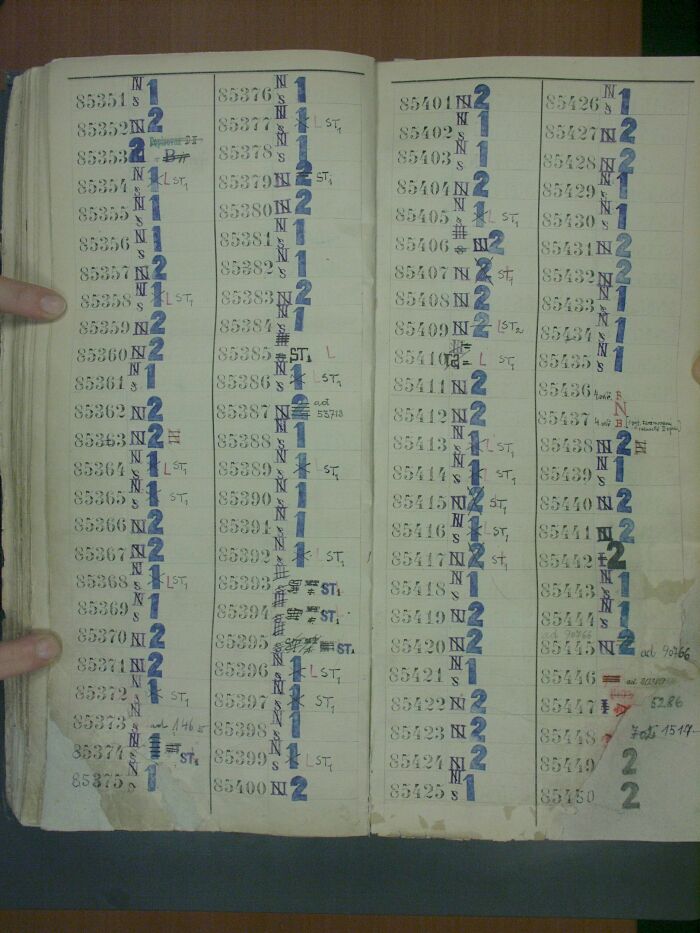 85351 N s 1
85352 N 2
85353 2
85354 N s 1 L ST1
85355 N s 1
85356 N s 1
85357 N 2
85358 N s 1 L ST1
85359 N 2
85360 N 2
85361 N s 1
85362 N 2
85363 N 2
85364 N s 1 L ST1
85365 N s 1 ST1
85366 N 2
85367 N 2
85368 N s 1 L ST1
85369 N s 1
85370 N 2
85371 N 2
85372 N s 1 ST1
85373 N s ad
85374 N s 1 ST1
85375 N s 1
85376 N s 1
85377 N s 1 L ST1
85378 N s 1
85379 N 2 ST1
85380 N 2
85381 N s 1
85382 N s 1
85383 N 2
85384 N s 1
85385 ST1 L
85386 N s 1 L ST1
85387 N 2 ad
85388 N s 1
85389 N s 1 L ST1
85390 N s 1
85391 N s 1
85392 N s 1 L ST1
85393 ST1
85394 ST1
85395 ST1
85396 N s 1 L ST1
85397 N s 1 ST1
85398 N s 1
85399 N s 1 L ST1
85400 N 2
85401 N 2
85402 N s 1
85403 N s 1
85404 N 2
85405 N s 1 L ST1
85406 N 2
85407 N 2 ST1
85408 N 2
85409 N 2 L ST2
85410 L ST1
85411 N 2
85412 N 2
85413 N s 1 L ST1
85414 N s 1 L ST1
85415 N 2 ST1
85416 N s 1 L ST1
85417 N 2 ST1
85418 N s 1
85419 N 2
85420 N 2
85421 N s 1
85422 N 2
85423 N 2
85424 N 2
85425 N s 1
85426 N s 1
85427 N 2
85428 N 2
85429 N s 1
85430 N s 1
85431 N 2
85432 N 2
85433 N s 1
85434 N s 1
85435 N s 1
85436 B
N
85437 B
85438 N 2
85439 N s 1
85440 N 2
85441 N 2
85442 2
85443 N s 1
85444 N s 1
ad 90766
85445 N 2 ad 90766
85446 ad
85447 5286
85448 1517
85449 2
85450 2